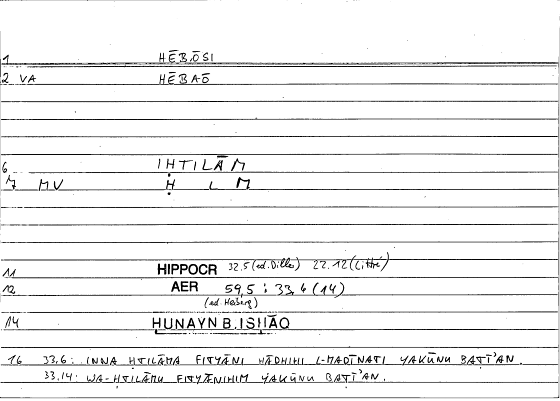 1 HĒBŌSI
2 VA HĒBAŌ
6 IḤTILĀM
7 MV Ḥ L M
11 HIPPOCR 32.5 (ed. Diller) 22.12 (Littré)
12 AER 59,5 ; 33,6 (14)
(ed. Heiberg)
14 ḤUNAYN B. ISḤĀQ
16 33.6: INNA ḤTILĀMA FITYĀNI HĀḎIHI L-MADĪNATI YAKŪNU BAṬĪ'AN.
33.14: WA-ḤTILĀMU FITYĀNIHIM YAKŪNU BAṬĪ'AN.